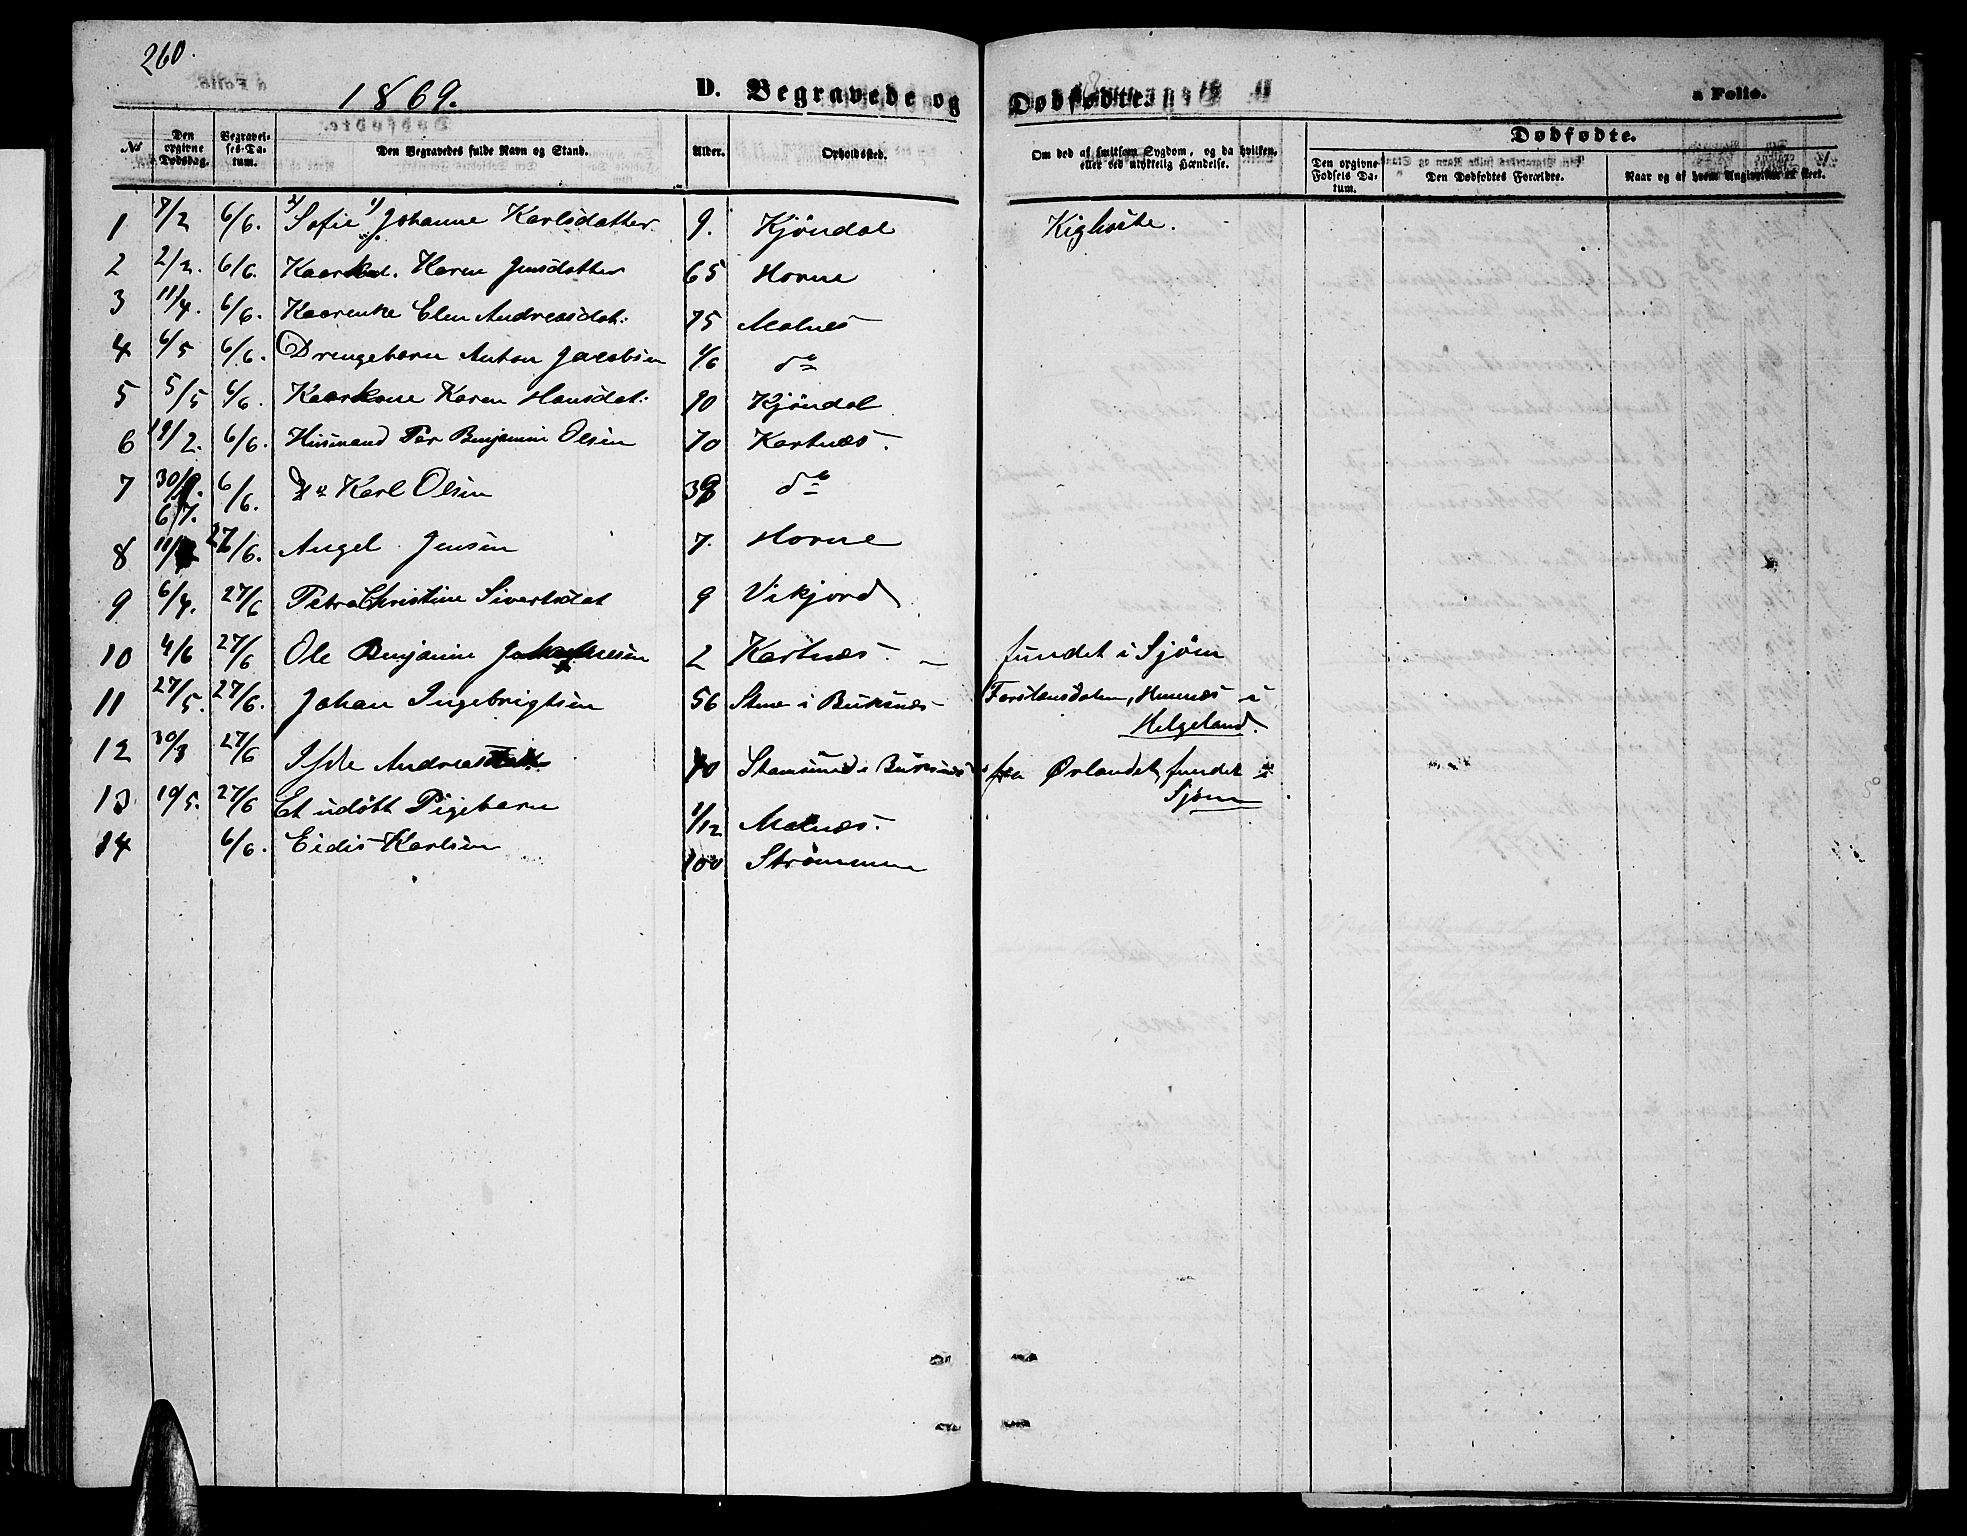 260.
1869.
D. Begravede og Dødfødte.
a Folio.
No
Den opgivne Dødsdag.
Begravelses-Datum.
Den Begravedes fulde Navn og Stand.
Alder.
Opholdssted.
Om død af smitsom Sygdom, og da hvilken, eller ved ulykkelig Hændelse.
Dødfødte.
Den opgivne Fødsels Datum.
Den Dødfødtes Forældre.
Naar og af hvem Angivelsen er skeet.
1 7/2 6/6. 2/ Sofie 1/ Johanne Karlsdatter 9. Kjøndal Kighoste.
2 2/2. 6/6. Karen Jensdatter 65 Horne
3 11/4. 6/6. Kaarenke Elen Andreasdat: 75 Molnes
4 6/5 6/6. Drengebarn Anton Jacobsen 1/6 do
5 5/5 6/6. Kaarkone Karen Hansdat: 90 Kjøndal
6 19/2. 6/6. Husmand Per Benjamin Olsen 70 Kartnæs.
7 6/6. Do Karl Olsen 39 do
6/7.
8 27/6. Angel Jensen 7. Horne
9 6/4. 27/6 Petra Christine Sivertsdat 9 Vikjord
10 4/6 27/6 Ole Benjamin 2 Kartnæs. – fundet i Sjøen
11 27/5. 27/6. Johan Ingebrigtsen 56 Stene i Buksnæs Hemnæs i
Helgeland.
12 30/3 27/6 Andreas Stamsund i Buksnæs fra Ørlandet, fundet i
Sjøen
13 19/5. 27/6 Et udøbt Pigebarn 1/12 Molnæs.
14 6/6. Eidis Karlsen 100 Strømmen